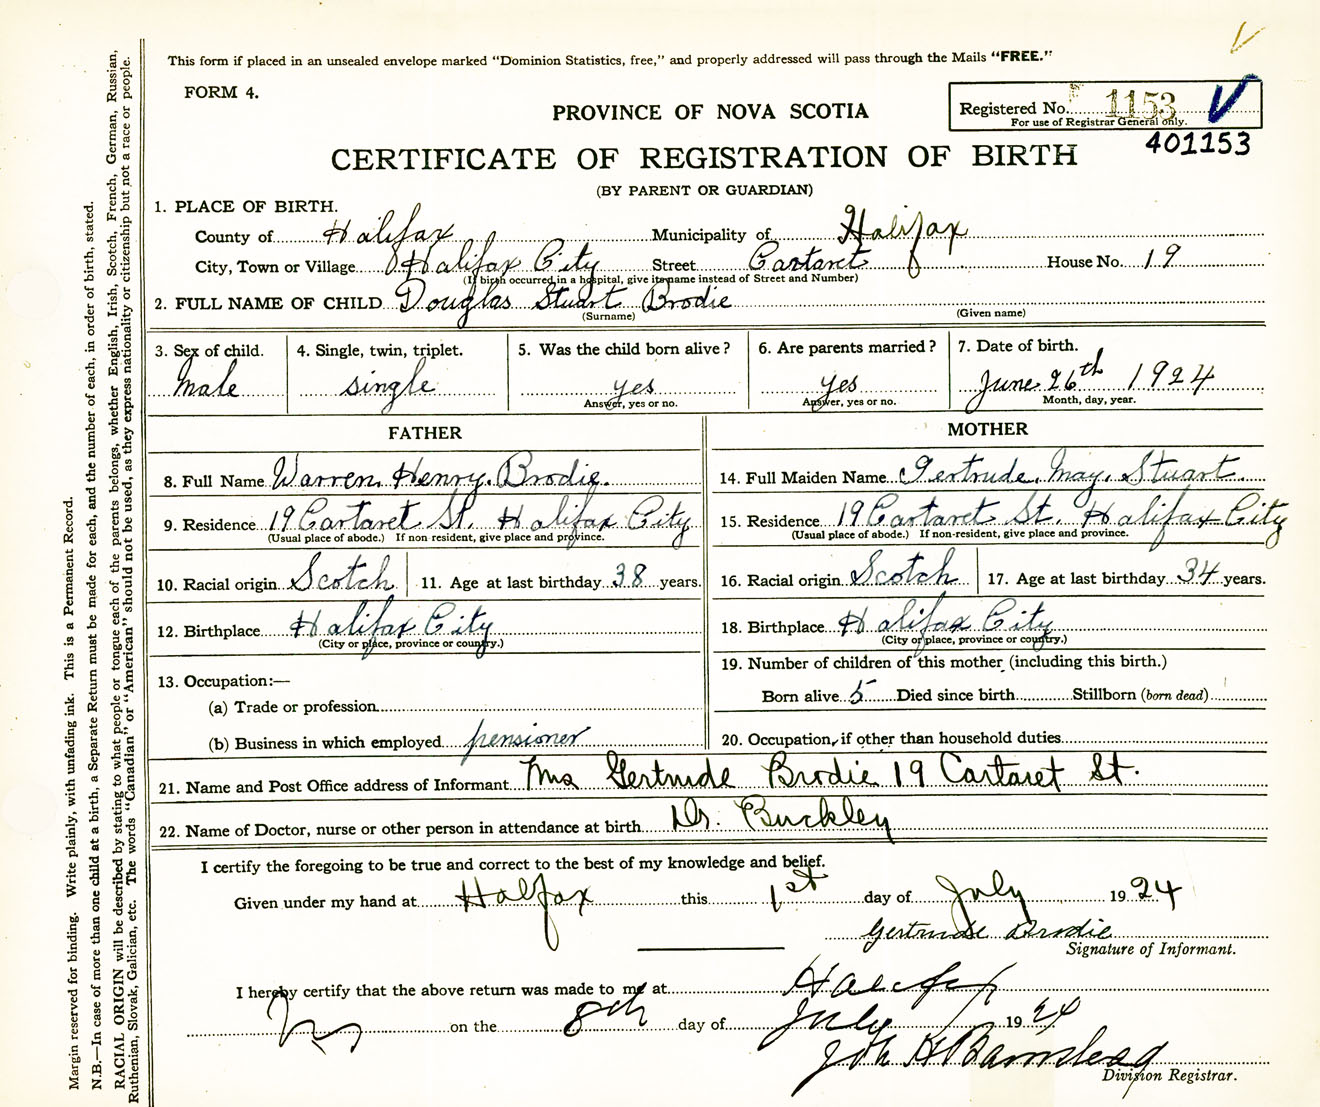 This form if placed in an unsealed envelope marked "Dominion Statistics, free," and properly addressed will pass through the Mails "FREE."
FORM 4.
PROVINCE OF NOVA SCOTIA
Registered No. 1153
For use of Registrar General only.
401153
CERTIFICATE OF REGISTRATION OF BIRTH
(BY PARENT OR GUARDIAN)
1. PLACE OF BIRTH.
County of Halifax Municipality of Halifax
City, Town or Village Halifax City Street Cartaret House No. 19
(If birth occurred in a hospital, give its name instead of Street and Number)
2. FULL NAME OF CHILD Douglas Stuart Brodie
(Surname) (Given name)
3. Sex of child. 4. Single, twin, triplet. 5. Was the child born alive? 6. Are parents married? 7. Date of birth.
Male single yes yes June 26th 1924
Answer, yes or no. Answer, yes or no. Month, day, year.
FATHER MOTHER
8. Full Name Warren Henry. Brodie. 14. Full Maiden Name Gertrude. May. Stuart.
9. Residence 19 Cartaret St. Halifax City 15. Residence 19 Cartaret St. Halifax City
(Usual place of abode.) If non-resident, give place and province. (Usual place of abode.) If non-resident, give place and province.
10. Racial origin Scotch 11. Age at last birthday 38 years. 16. Racial origin Scotch 17. Age at last birthday 34 years.
12. Birthplace Halifax City 18. Birthplace Halifax City
(City or place, province or country.) (City or place, province or country.)
13. Occupation:— 19. Number of children of this mother (including this birth.)
(a) Trade or profession Born alive 5 Died since birth Stillborn (born dead)
(b) Business in which employed pensioner 20. Occupation, if other than household duties
21. Name and Post Office address of Informant Mrs Gertrude Brodie 19 Cartaret St.
22. Name of Doctor, nurse or other person in attendance at birth Dr. Buckley
I certify the foregoing to be true and correct to the best of my knowledge and belief.
Given under my hand at Halifax this 1st day of July 1924
Gertrude Brodie
Signature of Informant.
I hereby certify that the above return was made to me at Halifax
on the 8th day of July 1924
Barnstead
Division Registrar.
Margin reserved for binding. Write plainly, with unfading ink. This is a Permanent Record.
N.B.—In case of more than one child at a birth, a Separate Return must be made for each, and the number of each, in order of birth, stated.
RACIAL ORIGIN will be described by stating to what people or tongue each of the parents belongs, whether English, Irish, Scotch, French, German, Russian,
Ruthenian, Slovak, Galician, etc. The words "Canadian" or "American" should not be used, as they express nationality or citizenship but not a race or people.